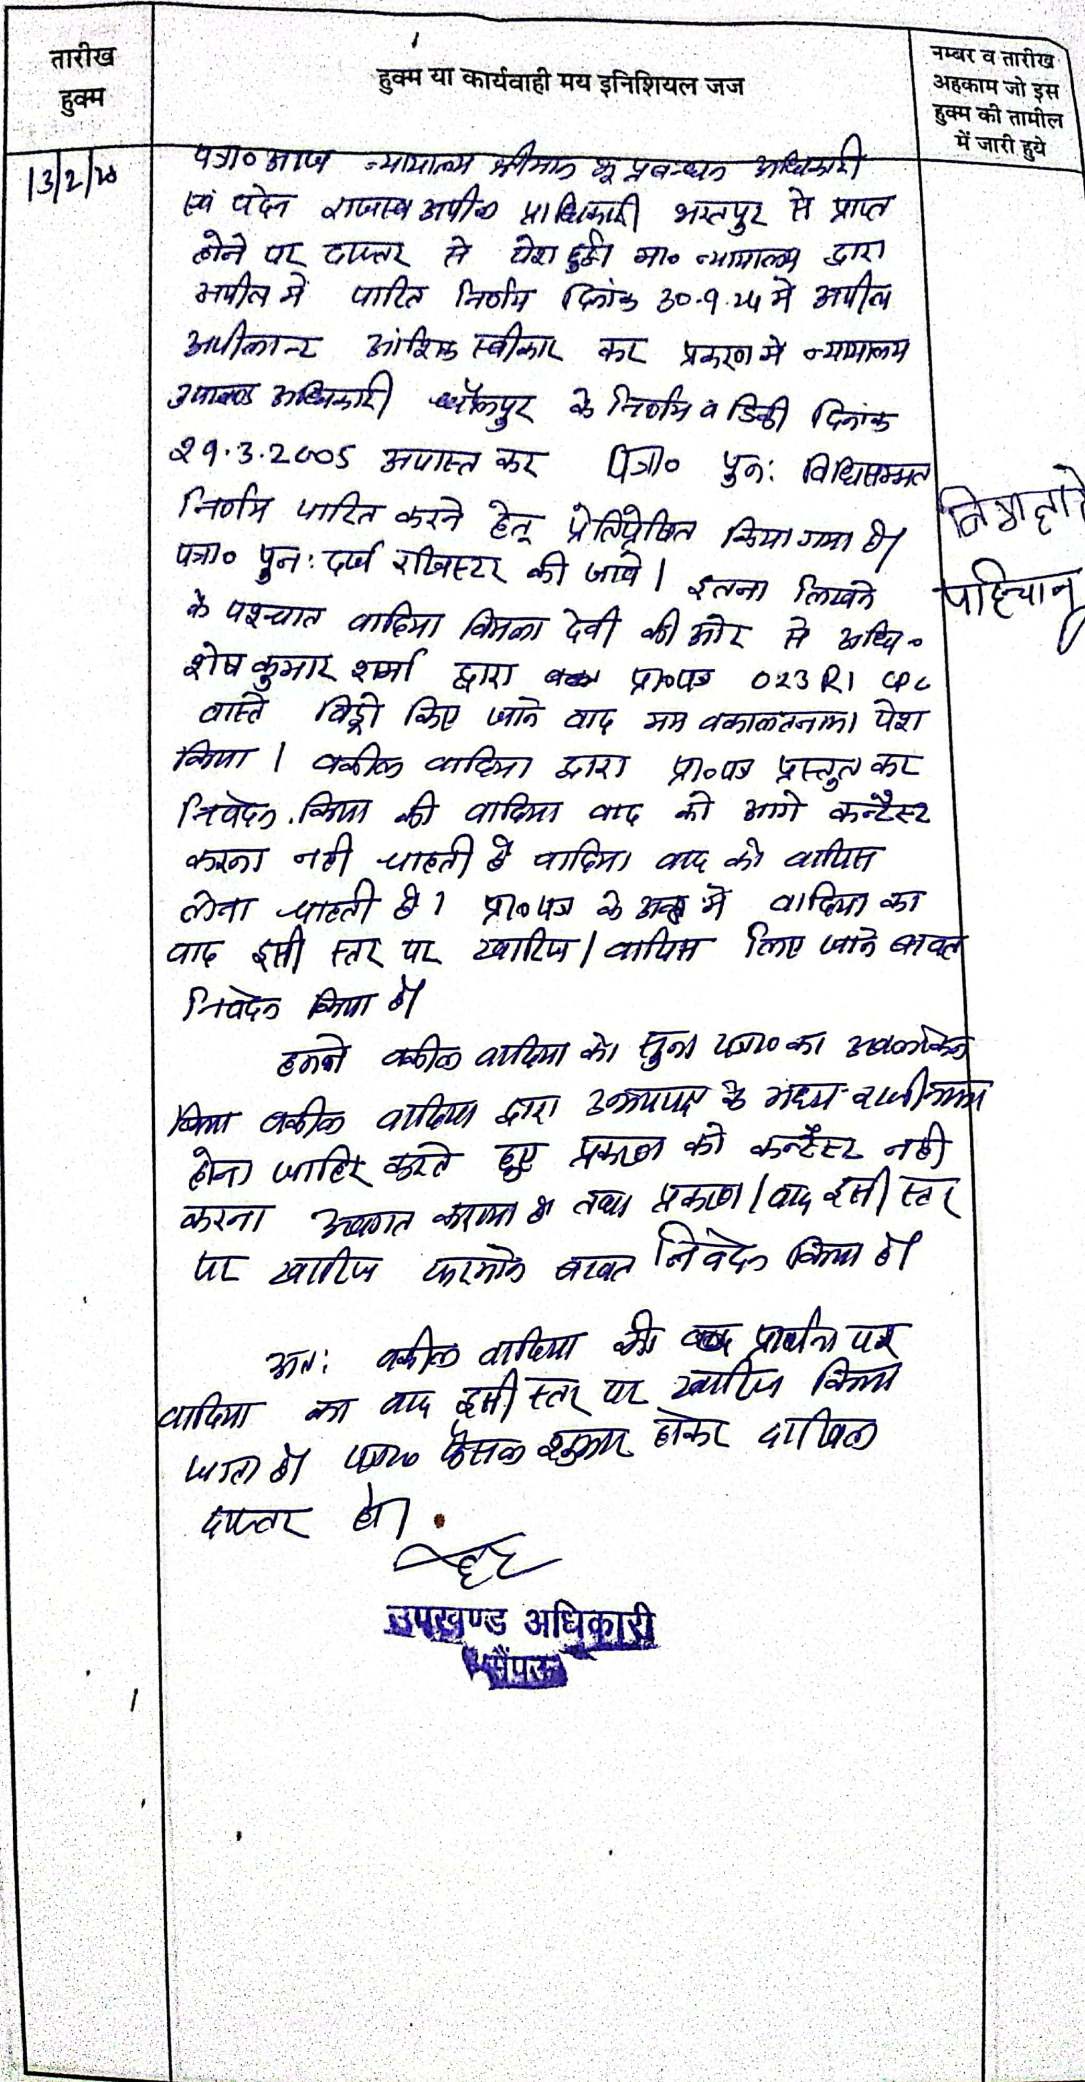 तारीख
हुक्म
हुक्म या कार्यवाही मय इनिशियल जज
नम्बर व तारीख
अहकाम जो इस
हुक्म की तामील
में जारी हुये
13/2/20
पत्रा० आज न्यायालय श्रीमान भू प्रबन्धन अधिकारी
एवं पदेन राजस्व अपील प्राधिकारी भरतपुर से प्राप्त
होने पर दफ्तर से पेश हुई। मा० न्यायालय द्वारा
अपील में पारित निर्णय दिनांक 30.9.24 में अपील
अपीलान्ट आंशिक स्वीकार कर प्रकरण में न्यायालय
उपखण्ड अधिकारी धौलपुर के निर्णय व डिक्री दिनांक
29.3.2005 अपास्त कर पत्रा० पुन: विधिसम्मत
निर्णय पारित करने हेतु प्रतिप्रेषित किया गया है।
पत्रा० पुन: दर्ज रजिस्टर की जावे। इतना लिखने
के पश्चात वादिया विमला देवी की ओर से अधि०
शेष कुमार शर्मा द्वारा प्रा०पत्र 023 R1 CPC
वास्ते विड्रो किए जाने वाद मय वकालतनामा पेश
किया। वकील वादिया द्वारा प्रा०पत्र प्रस्तुत कर
निवेदन किया की वादिया वाद को आगे कन्टैस्ट
करना नही चाहती है वादिया वाद को वापिस
लेना चाहती है। प्रा०पत्र के अन्त में वादिया का
वाद इसी स्तर पर खारिज/वापिस लिए जाने बावत
निवेदन किया है।
हमने वकील वादिया को सुना पत्रा० का अवलोकन
किया वकील वादिया द्वारा उभयपक्ष के मध्य राजीनामा
होना जाहिर करते हुए प्रकरण को कन्टैस्ट नही
करना अवगत कराया है तथा प्रकरण/वाद इसी स्तर
पर खारिज फरमाने बावत निवेदन किया है।
अत: वकील वादिया की प्रार्थना पर
वादिया का वाद इसी स्तर पर खारिज किया
जाता है। पत्रा० फैसल शुमार होकर दाखिल
दफ्तर हो।
उपखण्ड अधिकारी
सैंपऊ
पहिचान